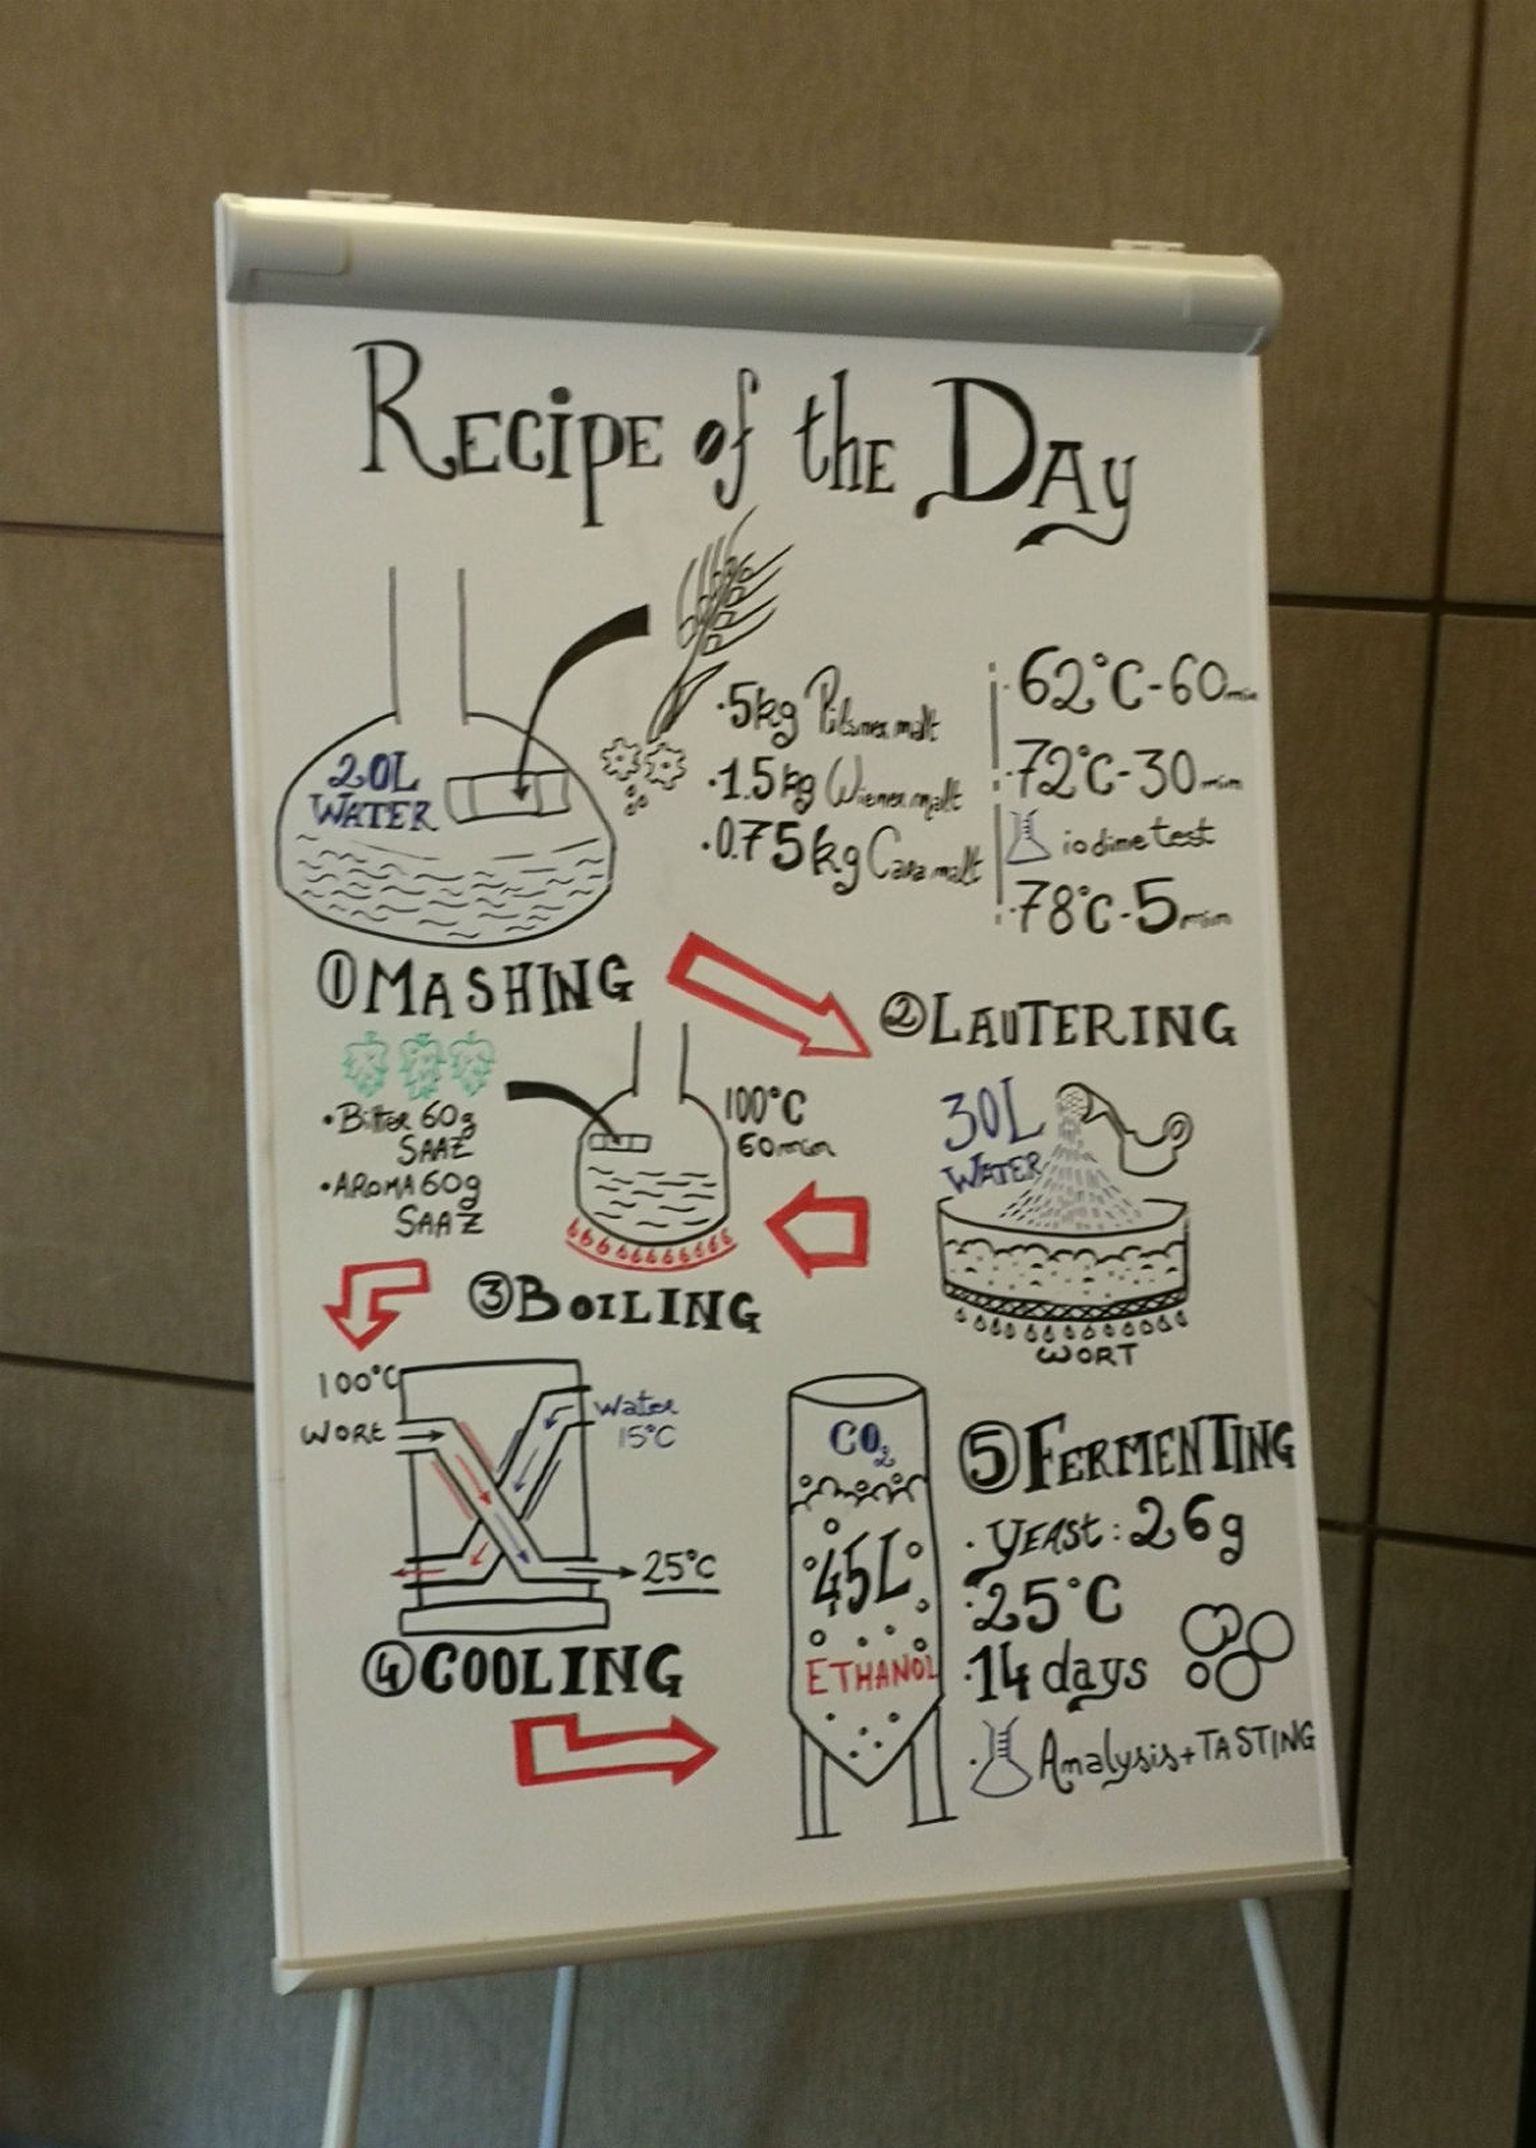 Recipe of the Day
20L
WATER
·5kg Pilsner malt
·1.5kg Wiener malt
·0.75kg Cara malt
·62°C-60min
·72°C-30min
iodine test
·78°C-5min
①MASHING
②LAUTERING
30L
WATER
WORT
•Bitter 60g
SAAZ
•AROMA 60g
SAAZ
100°C
60min
③BOILING
100°C
WORT
Water
15°C
25°C
④COOLING
CO₂
45L
ETHANOL
⑤FERMENTING
·YEAST: 26g
·25°C
·14 days
·Analysis+TASTING